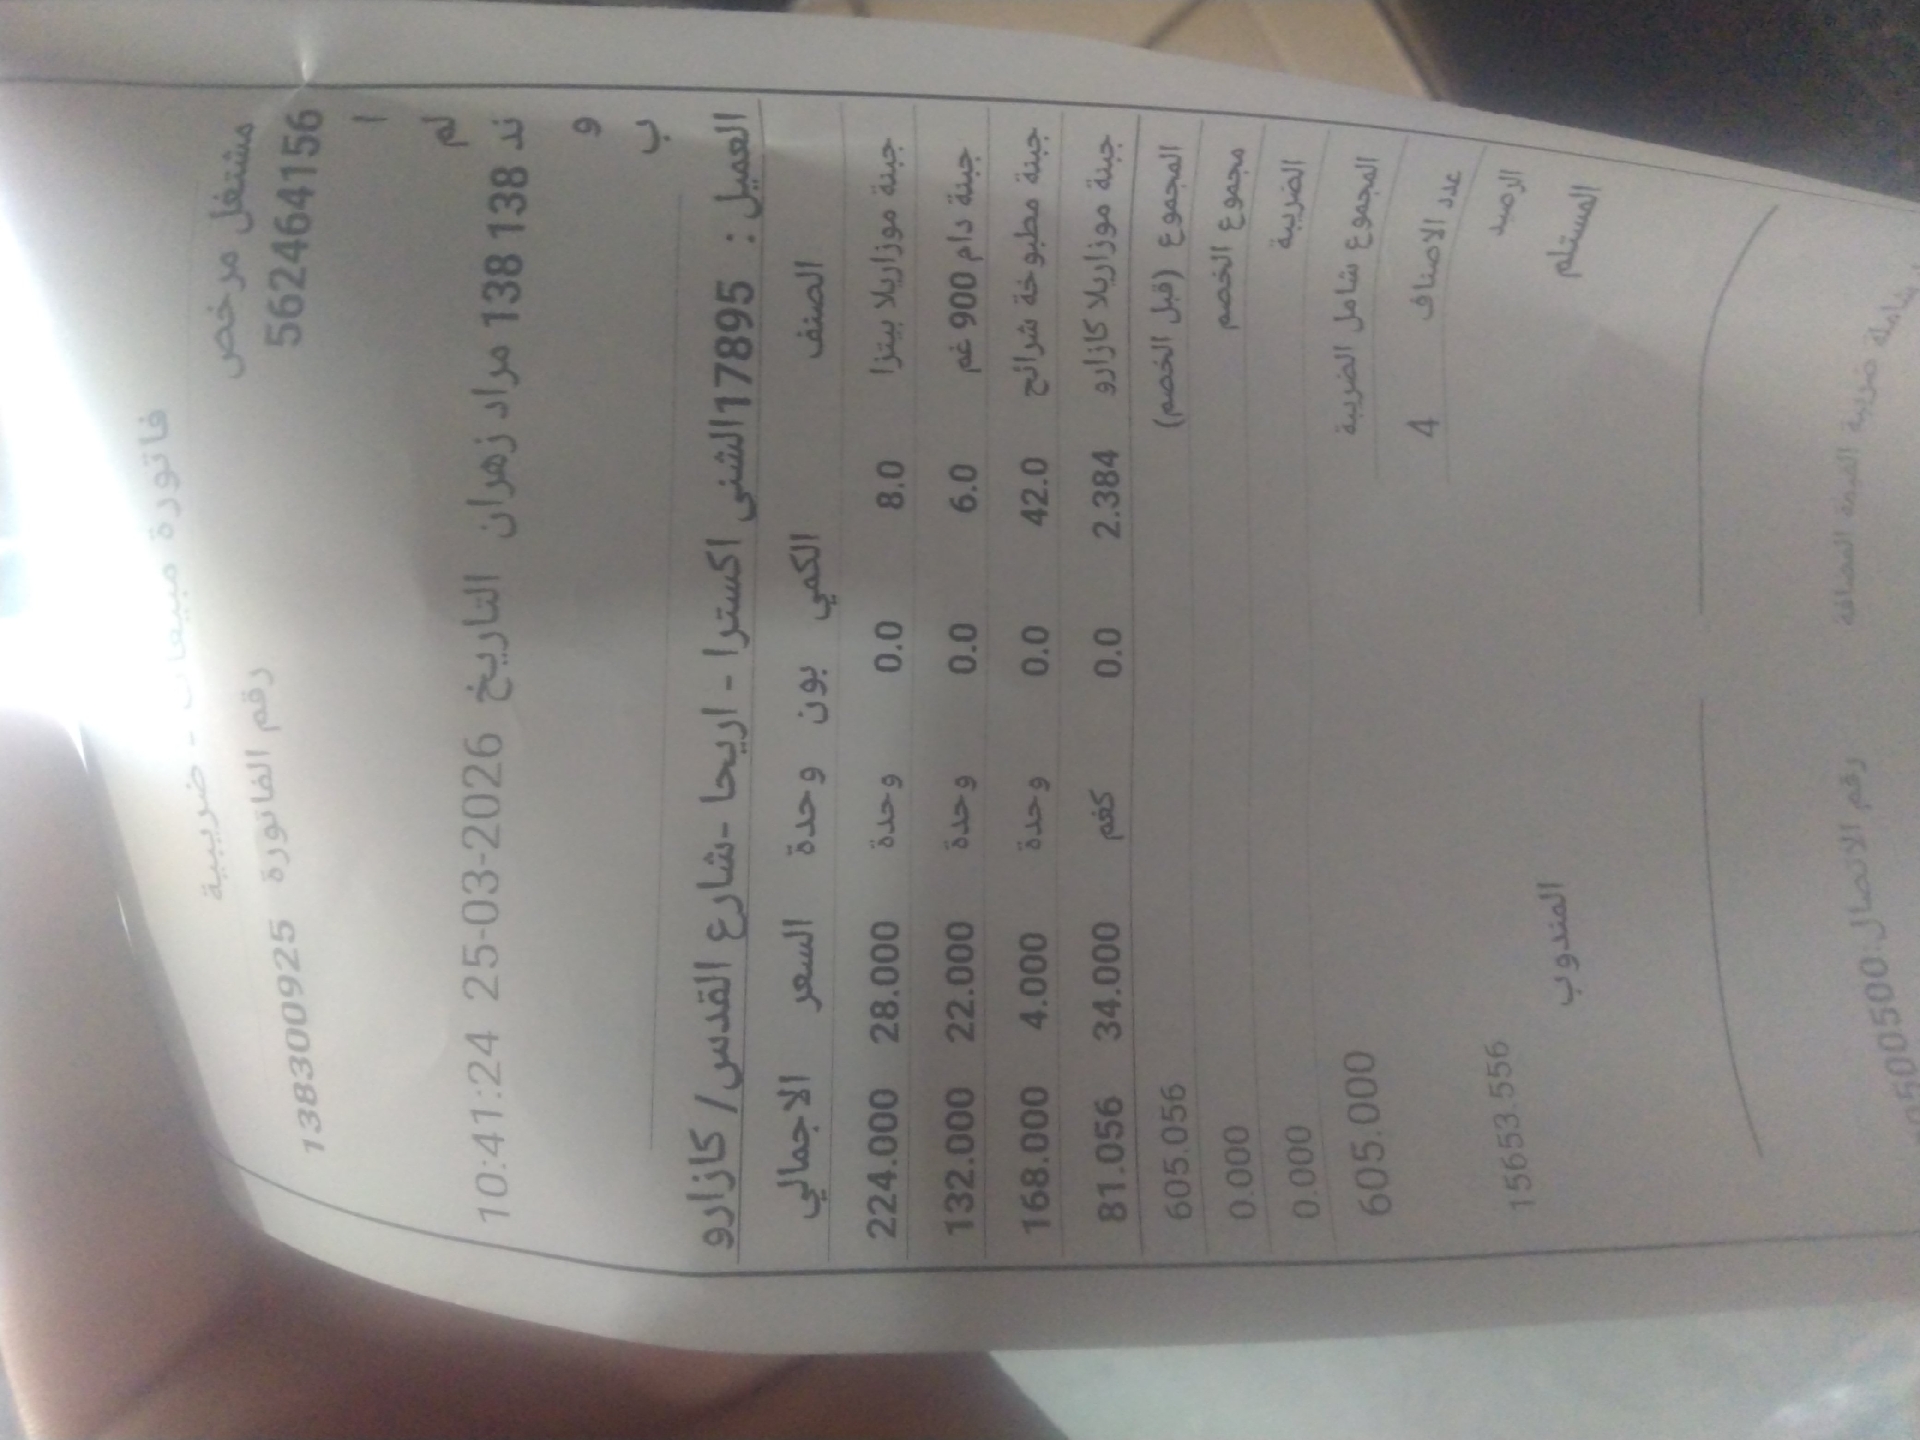 فاتورة مبيعات - ضريبية
مشتغل مرخص رقم الفاتورة
562464156 138300925
ا
لم
ند 138 138 مراد زهران التاريخ 25-03-2026 10:41:24
و
ب
العميل : 17895الشني اكسترا - اريحا -شارع القدس/ كازارو
الصنف الكمي بون وحدة السعر الاجمالي
جبنة موزاريلا بيتزا 8.0 0.0 وحدة 28.000 224.000
جبنة دام 900 غم 6.0 0.0 وحدة 22.000 132.000
جبنة مطبوخة شرائح 42.0 0.0 وحدة 4.000 168.000
جبنة موزاريلا كازارو 2.384 0.0 كغم 34.000 81.056
المجموع (قبل الخصم) 605.056
مجموع الخصم 0.000
الضريبة 0.000
المجموع شامل الضريبة 605.000
عدد الاصناف 4
الرصيد 15653.556
المستلم المندوب
شاملة ضريبة القيمة المضافة رقم الاتصال: